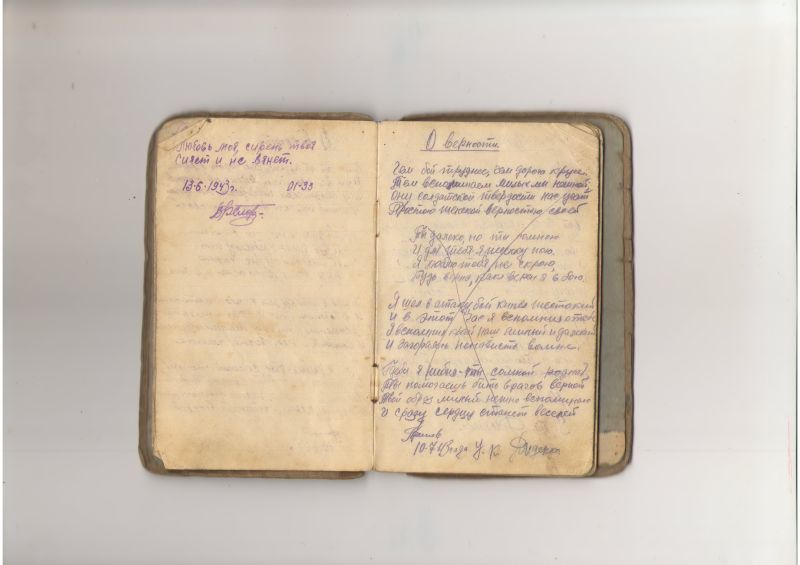 Любовь моя, сирень твоя
Сияет и не вянет.
13.6.1943г. 01-33
О верности.
Чем бой труднее, чем дорога круче
Тем вспоминаем милых мы нежней
Они солдатской твердости нас учат
Простою женской верностью своей
Ты далеко, но ты со мною
И для тебя я песенку пою.
Я люблю тебя не скрою,
Будь верна, как верен я в бою.
Я шел в атаку бой кипел жестокий
И в этот час я вспомнил
Я вспомнил наш милый и далекий
И загоралась ненависть во мне.
Тебя я ты со мной родной
Ты помогаешь бить врагов верней
Твой образ милый нежно вспоминаю
И сразу сердцу станет веселей
Припев
10.7.43 года У. К.